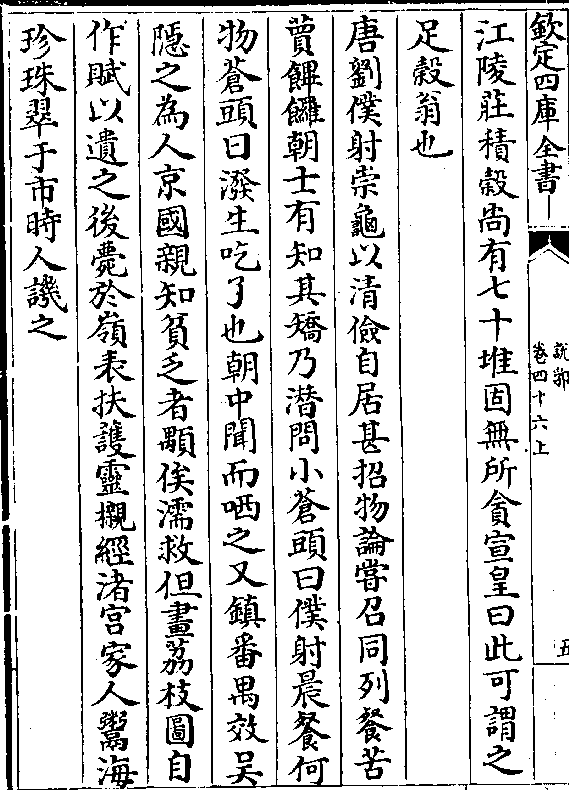 欽定四庫全書
說郛
卷四十六上
五
江陵莊積榖尚有七十堆固無所貪宣皇曰此可謂之
足榖翁也
唐劉僕射崇龜以清儉自居甚招物論嘗召同列餐苦
蕒饆饠朝士有知其矯乃潛問小蒼頭曰僕射晨餐何
物蒼頭曰潑生吃了也朝中聞而哂之又鎮番禺效吴
隱之為人京國親知貧乏者顒俟濡救但畫荔枝圖自
作賦以遺之後薨於嶺表扶䕶靈櫬經渚宫家人鬻海
珍珠翠于市時人譏之